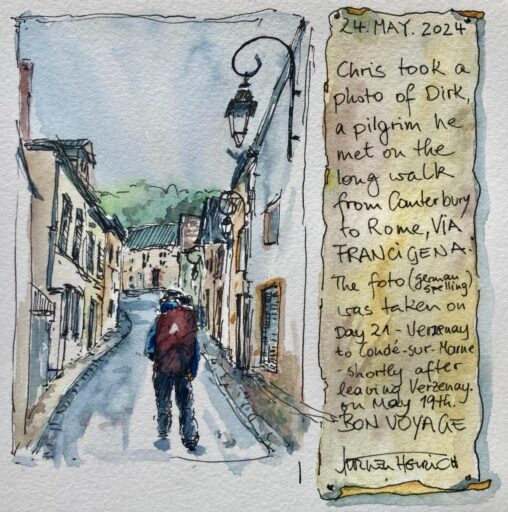 24. MAY. 2024
Chris took a
photo of Dirk,
a pilgrim he
met on the
long walk
from Canterbury
to Rome, VIA
FRANCIGENA.
The foto (german
spelling)
was taken on
Day 21 - Verzenay
to Condé-sur-Marne
- shortly after
leaving Verzenay.
on May 19th.
BON VOYAGE